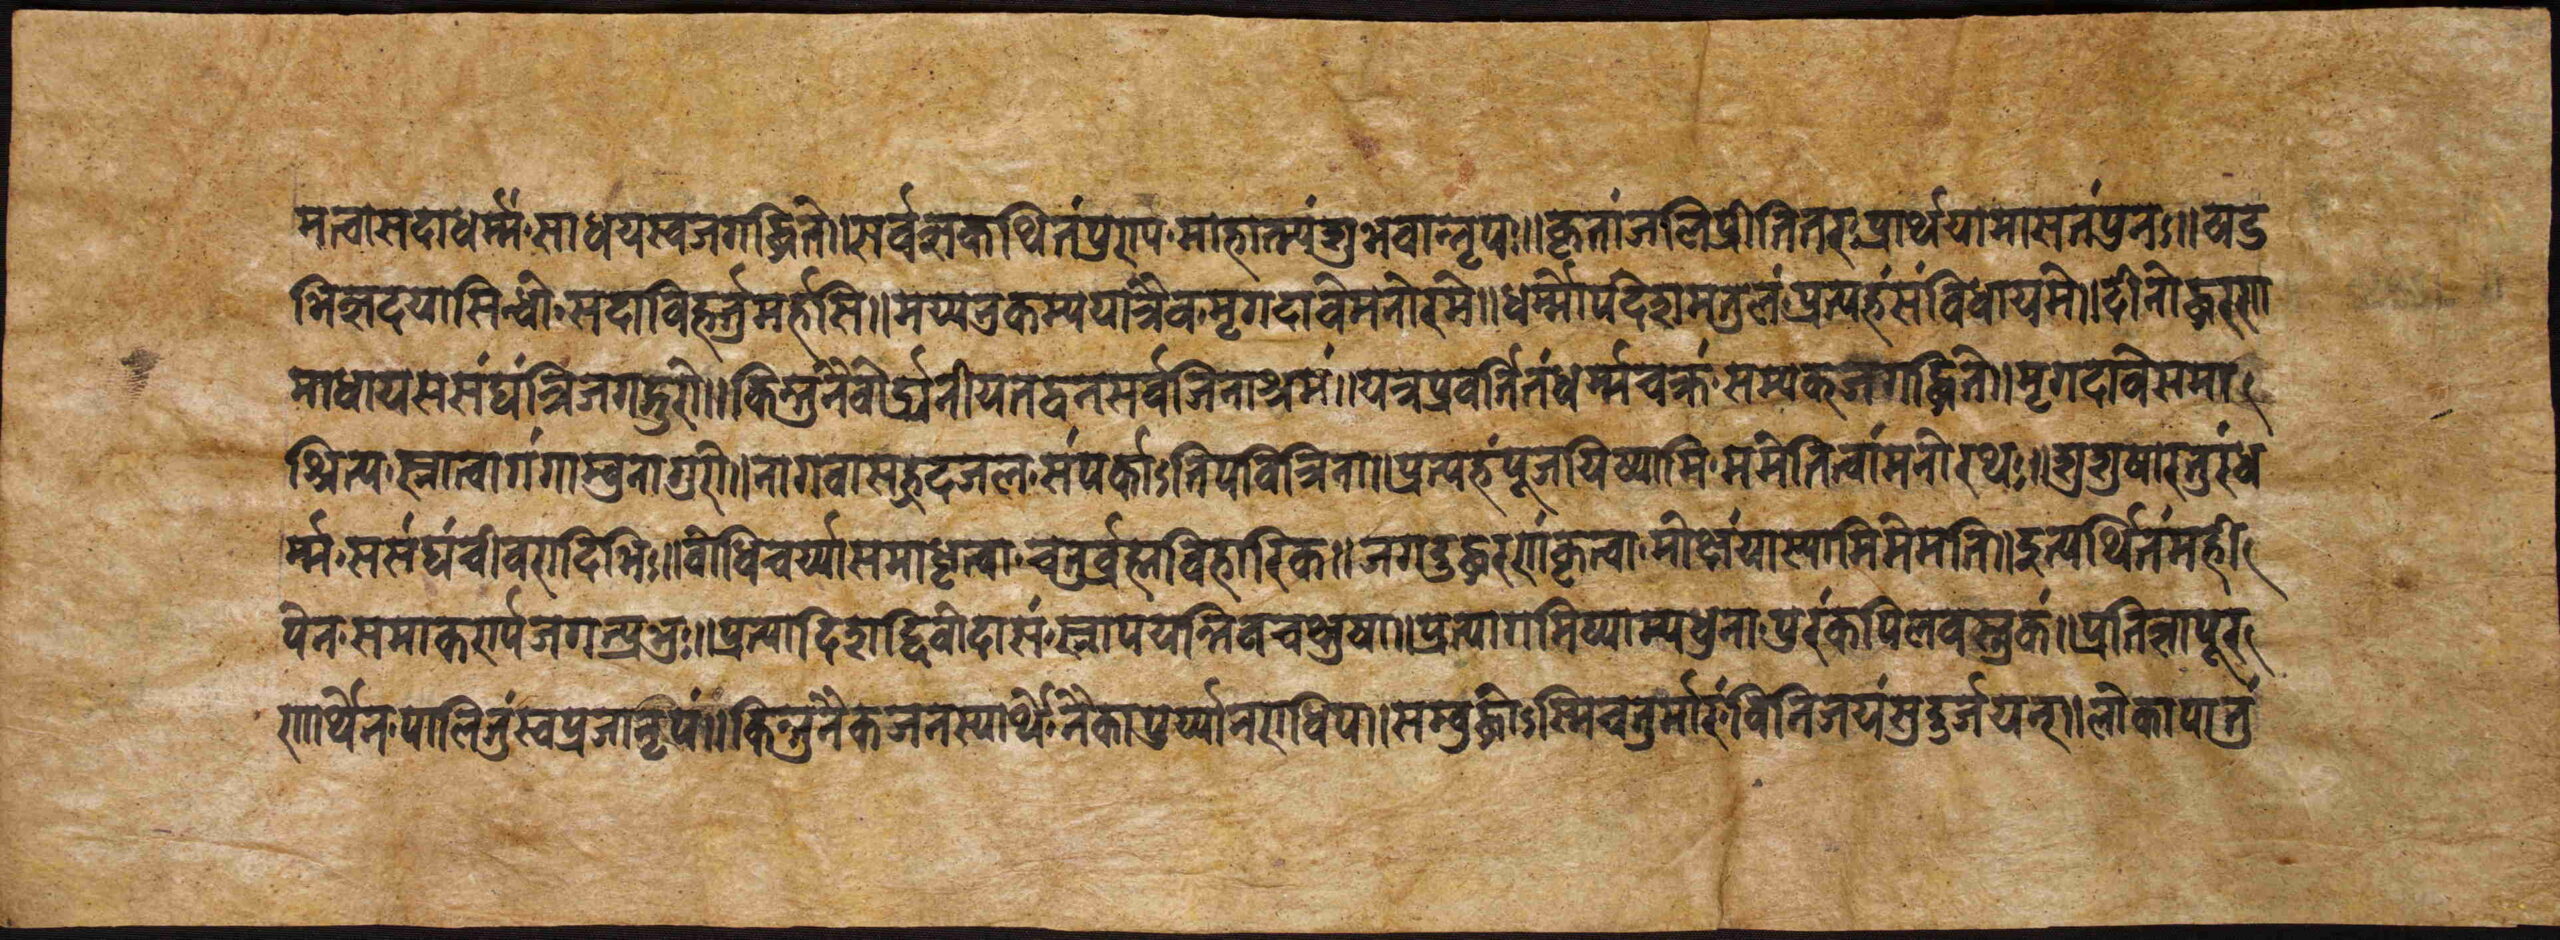 मत्वासदाधर्म्मं॰साधयस्वजगद्धिते॥सर्वज्ञकथितंपुण्य॰माहात्म्यंशुभवान्नृपः॥कृतांजलिप्रीतितर॰प्रार्थयामासतंपुनः॥षड
भिज्ञदयासिन्धो॰सदाविहर्तुमर्हसि॥मय्यनुकम्पयात्रैव॰मृगदावेमनोरमे॥धर्म्मोपदिशमतुलंप्रत्यहंसंविधायमे॥दीनोद्धरण
माधायससंघंत्रिजगद्गुरो॥किन्तुनैवोर्द्ध्वनीयतेद्वनसर्वजिनाश्रमं॥यत्रप्रवर्त्तितंधर्म्मचक्रं॰सम्यक्जगद्धिते॥मृगदावेसमा
श्रित्य॰स्नात्वागंगाम्बुनागुरो॥नागवासह्रदजल॰संपर्काऽतिपवित्रिना॥प्रत्यहंपूजयिष्यामि॰ममेतित्वांमनोरथः॥शुशुषारतुरंध
र्म्मं॰ससंघंचीवरादिभिः॥बोधिचर्य्यासमाधृत्वा॰चतुर्ब्रह्मविहारिक॥जगदुद्धरणंकृत्वा॰मोक्षंयास्यामिमेमति॥इत्यर्थितंमही
पेन॰समाकर्ण्यजगत्प्रभुः॥प्रत्यादिशद्दिवोदासं॰स्नापयन्निवचक्षुषा॥प्रत्यागमिष्याम्यधुना॰पुरंकपिलवस्तुकं॥प्रतिज्ञापूर
णार्थेन॰पालितुंस्वप्रजानृपं॥किन्तुनैकजनस्यार्थे॰नैकापुर्य्यानराधिप॥सम्बुद्धोऽस्मिचतुर्मारं॰विनिजयंसुदुर्जयन्॥लोकापातुं